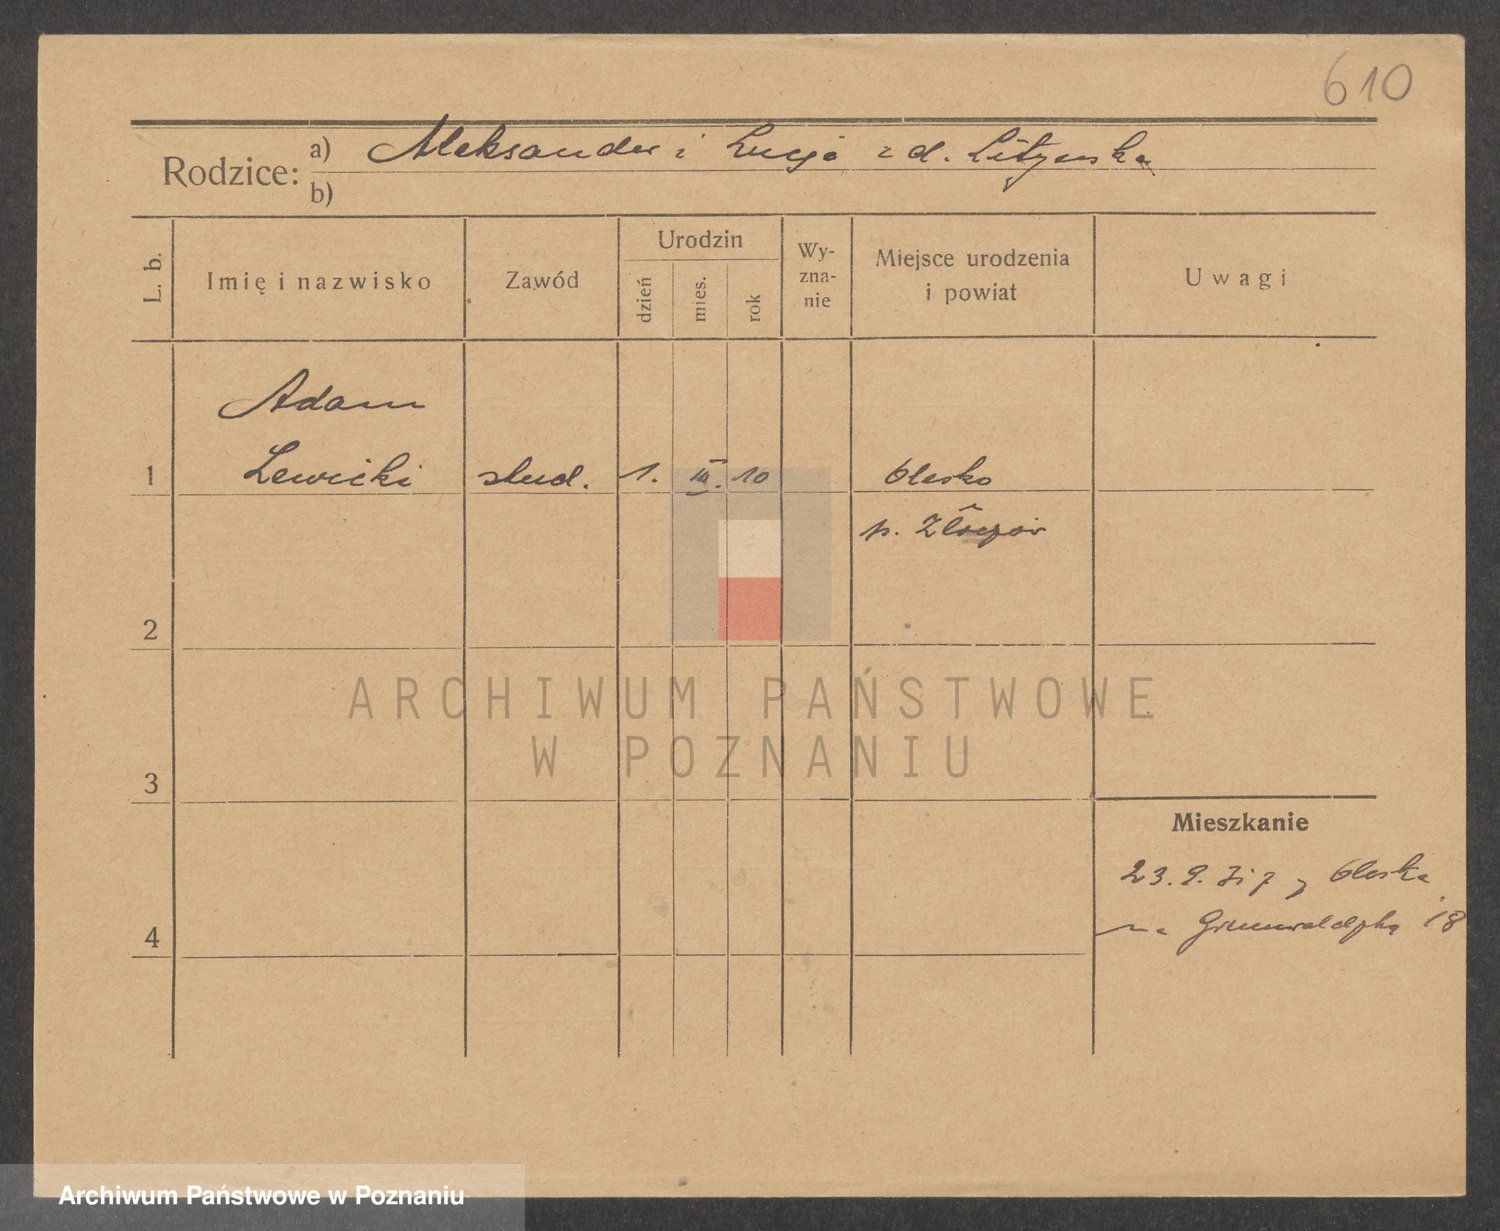 610
Rodzice: a) Aleksander i Lucja z d. Lityńska
b)
L. b. Imię i nazwisko Zawód Urodzin dzień mies. rok Wyznanie Miejsce urodzenia i powiat Uwagi
Adam
1 Lewicki stud. 1. III. 10 Olesko
p. Złoczów
2
ARCHIWUM PAŃSTWOWE
W POZNANIU
3
Mieszkanie
23. 9. z Oleska
4 na Grunwaldzką 18
Archiwum Państwowe w Poznaniu